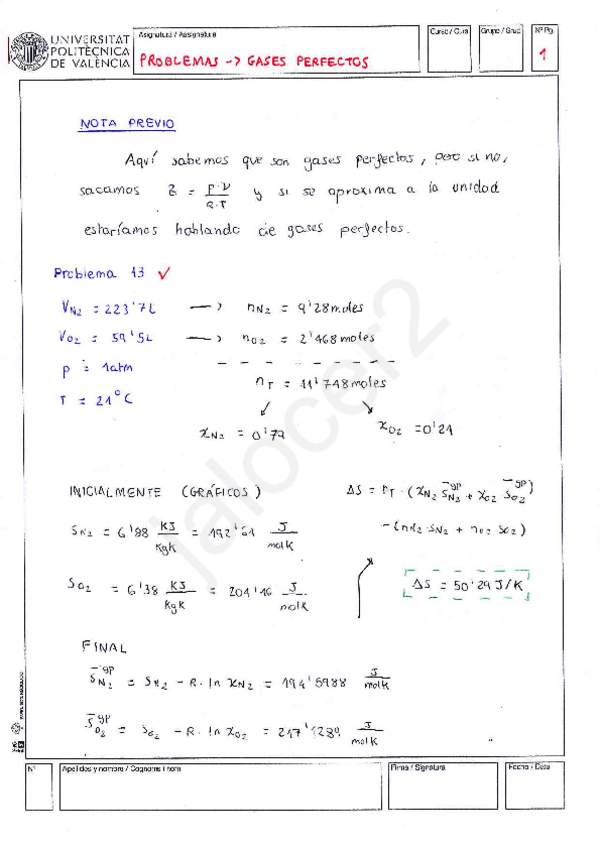 UNIVERSITAT
POLITÈCNICA
DE VALÈNCIA
Asignatura / Assignatura
PROBLEMAS -> GASES PERFECTOS
Curso / Curs
Grupo / Grup
Nº Pg.
1
NOTA PREVIO
Aquí sabemos que son gases perfectos, pero si no,
sacamos Z = P·V / R·T y si se aproxima a la unidad
estaríamos hablando de gases perfectos.
Problema 13 ✓
V_N2 = 223'7L → n_N2 = 9'28 moles
V_O2 = 59'5L → n_O2 = 2'468 moles
p = 1atm
n_T = 11'748 moles
T = 21°C
x_N2 = 0'79
x_O2 = 0'21
INICIALMENTE (GRÁFICOS)
ΔS = n_T · (x_N2 s̄_N2^gp + x_O2 s̄_O2^gp)
- (n_N2 · s_N2 + n_O2 s_O2)
s_N2 = 6'88 KJ/Kgk = 192'61 J/molK
ΔS = 50'29 J/K
s_O2 = 6'38 KJ/Kgk = 204'16 J/molK
FINAL
s̄_N2^gp = s_N2 - R · ln x_N2 = 194'5988 J/molK
s̄_O2^gp = s_O2 - R · ln x_O2 = 217'1289 J/molK
jalocer2
Nº
Apellidos y nombre / Cognoms i nom
Firma / Signatura
Fecha / Data